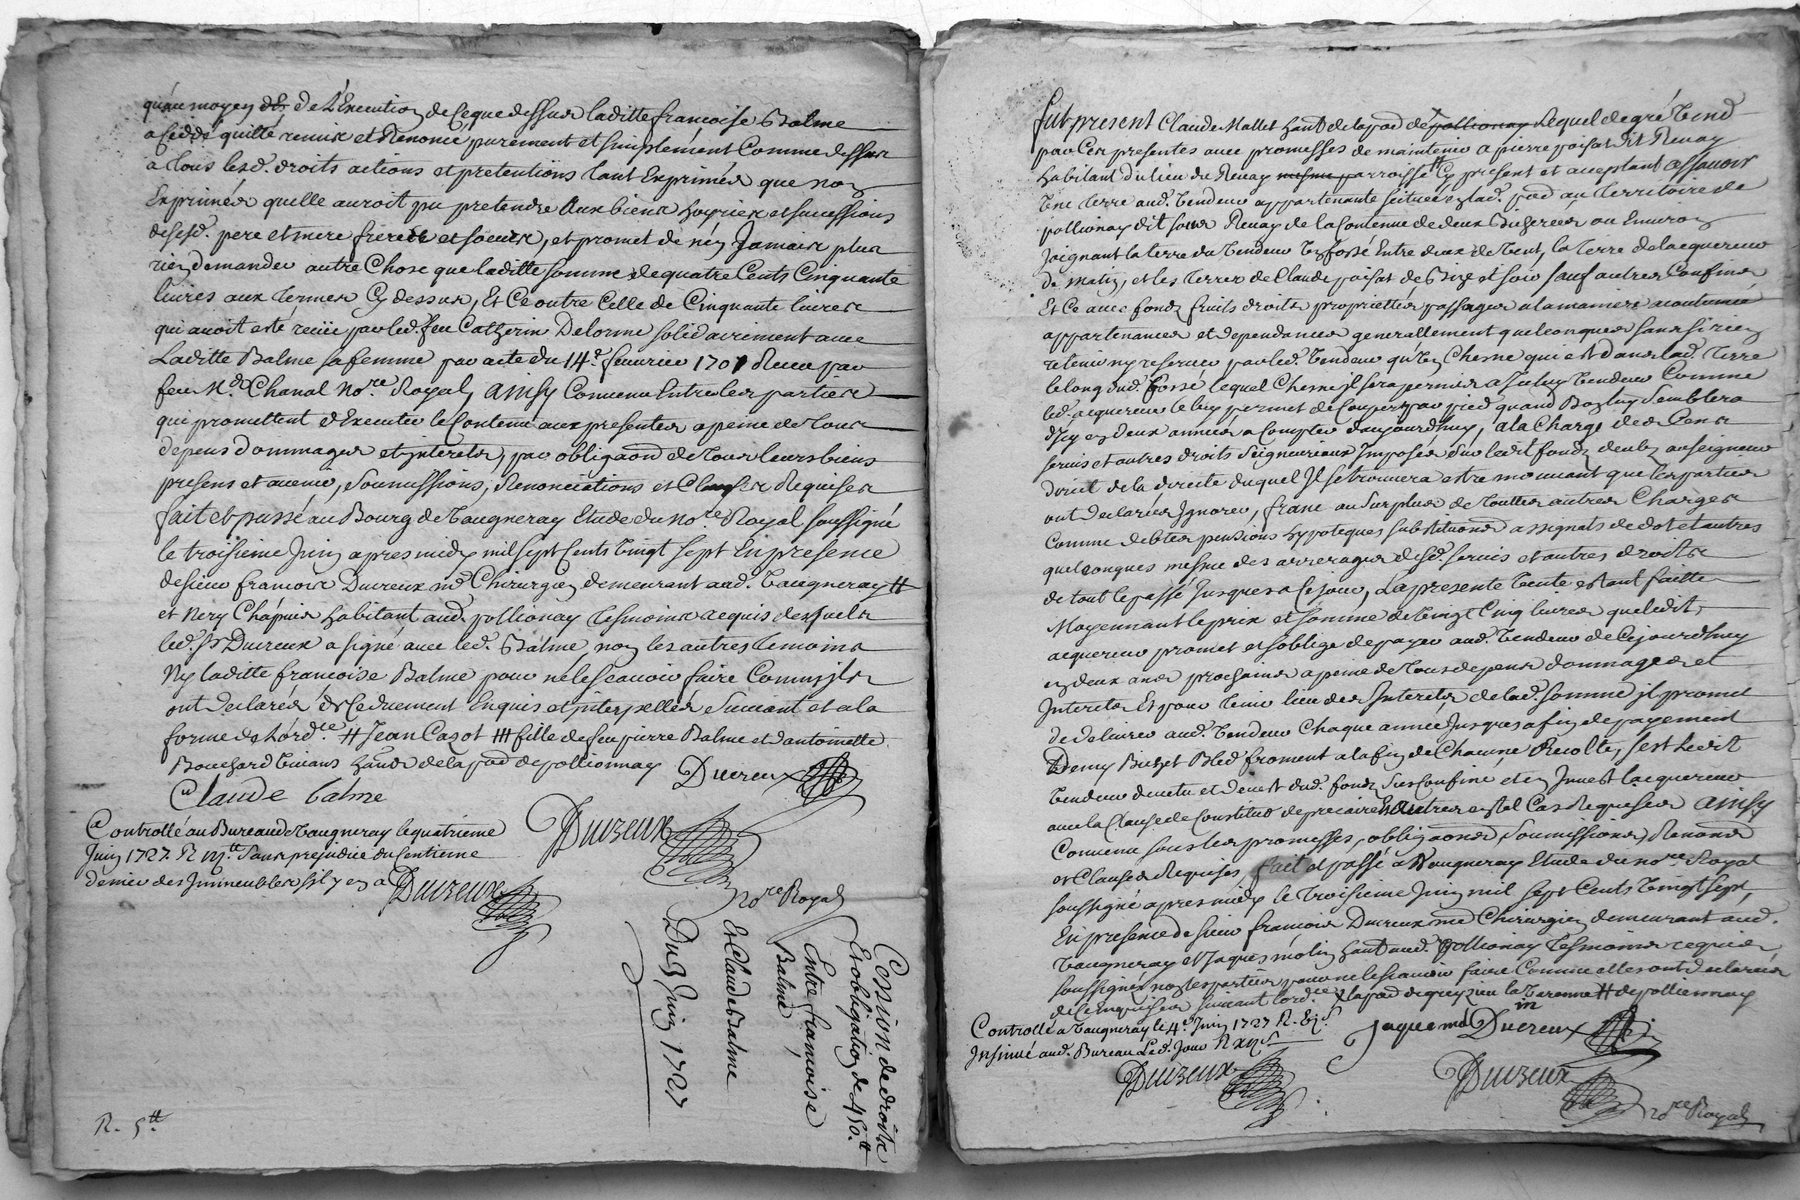 qu'au moyen de L'Execution de ce que dessus laditte francoise Balme
a cédé quitté remis et Renoncé purement et simplement Comme dessus
a tous lesd. droits actions et pretentions tant Exprimés que non
Exprimés quelle auroit pu pretendre aux biens hoyries et successions
de sesd. pere et mere freres et soeurs, et promet de n'en Jamais plus
rien demander autre Chose que laditte somme de quatre Cents Cinquante
livres aux termes Cy dessus, Et Ce outre Celle de Cinquante livres
qui avoit esté receüe par led. feu Catherin Delorme solidairement avec
Laditte Balme sa femme par acte du 14e. feuvrier 1701 Receu par
feu Me. Chanal No.re Royal, ainsy Convenu Entre les parties
qui promettent d'Executer le Contenu aux presentes a peine de tous
depens dommages et interets, par obligaon de tous leurs biens
presens et avenir, soumissions, Renonciations et Clauses Requises
fait et passé au Bourg de Vaugneray Etude du no.re Royal soussigné
le troisieme Juin apres midy mil sept Cents vingt sept En presence
de sieur francois Ducreux me Chirurgien demeurant aud. Vaugneray #
et Nery Chapuis habitant aud. pollionay tesmoins requis desquels
led. Sr. Ducreux a signé avec led. Balme, non les autres temoins
Ny laditte françoise Balme pour ne le scavoir faire Comm'ils
ont declarés de Ce duement Enquis et interpellés Suivant et a la
forme de l'ord.ce # Jean Cazot ## fille de feu pierre Balme et d'antoinette
Bouchard vivans habts de la pad de pollionnay Ducreux
Claude balme
Controllé au Bureau de Vaugneray le quatrieme
Juin 1727. R sans prejudice du Centieme
denier des Immeubles s'il y en a Duizeux
Duizeux
no.re Royal
Cession de droits
Et obligation de 450.#
Entre francoise
Balme
Et Claude Balme
Du 3 Juin 1727
R. 5.#
fut present Claude Mallet habt de la pad de pollionay Lequel de gré vend
par Ces presentes avec promesses de maintenir a pierre poisat dit Renay
habitant du lieu de Renay mesme parroisse # Cy present et acceptant assavoir
Une terre aud. vendeur appartenante scituée en lad. pad au territoire de
pollionay dit sous Renay de la Contenue de deux Bicherées ou Environ
Joignant la terre du vendeur un fossé Entre deux de vent, la terre de lacquereur
de matin, et les terres de Claude poisat de Bize et soir sauf autres Confins
Et Ce avec fonds fruits droits proprietés passages a la maniere accoutumée
appartenances et dependances generallement quelconques sans si rien
retenir ny reserver par led. vendeur qu'un Chesne qui est dans lad. terre
le long dud. fossé lequel Chesne il sera permis a Iceluy vendeur Comme
led. acquereur le luy permet de Couper par pied quand Bon luy semblera
d'Icy en deux années a Compter d'aujourd'huy, a la Charge des Cens
servis et autres droits Seigneuriaux Imposés sur ledit fonds deubs au seigneur
direct de la directe duquel Il se trouvera estre mouvant que les parties
ont declarées Ignorer, franc au surplus de touttes autres Charges
Comme debtes pensions hypoteques substitutions assignats de dot et autres
quelconques mesme des arrerages desd. servis et autres droits
de tout le passé Jusques a Ce jour, La presente vente estant faitte
Moyennant le prix et somme de vingt Cinq livres que ledit
acquereur promet et s'oblige de payer aud. vendeur de Ce jourd'huy
en deux ans prochains a peine de tous depens dommages et
Interets Et pour tenir lieu des Interets de lad. somme il promet
de delivrer aud. vendeur Chaque année Jusques a fin de payement
Demy Bichet Bled froment a la fin de Chacune Recolte, s'est ledit
vendeur devetu et devest dud. fonds sus Confiné et en Invest lacquereur
avec la Clause de Constitut de precaire & autres en tel Cas Requises ainsy
Convenu sous les promesses, obligaons, Soumissions, Renonons
et Clauses Requises, fait et passé a Vaugneray Etude du no.re Royal
soussigné apres midy le troisieme Juin mil sept Cents vingt sept,
En presence de sieur francois Ducreux me Chirurgien demeurant aud.
Vaugneray et Jaques molin habt aud. pollionay tesmoins requis
soussignés non les parties pour ne le scavoir faire Comme elles ont declarées
de Ce Enquises suivant l'ord.ce X la pad de grezieu la Varenne # de pollionnay
Controllé a Vaugneray le 4e. Juin 1727 R.
Insinué aud. Bureau Led. Jour R
Jaque molin Ducreux
Duizeux
Duizeux
no.re Royal